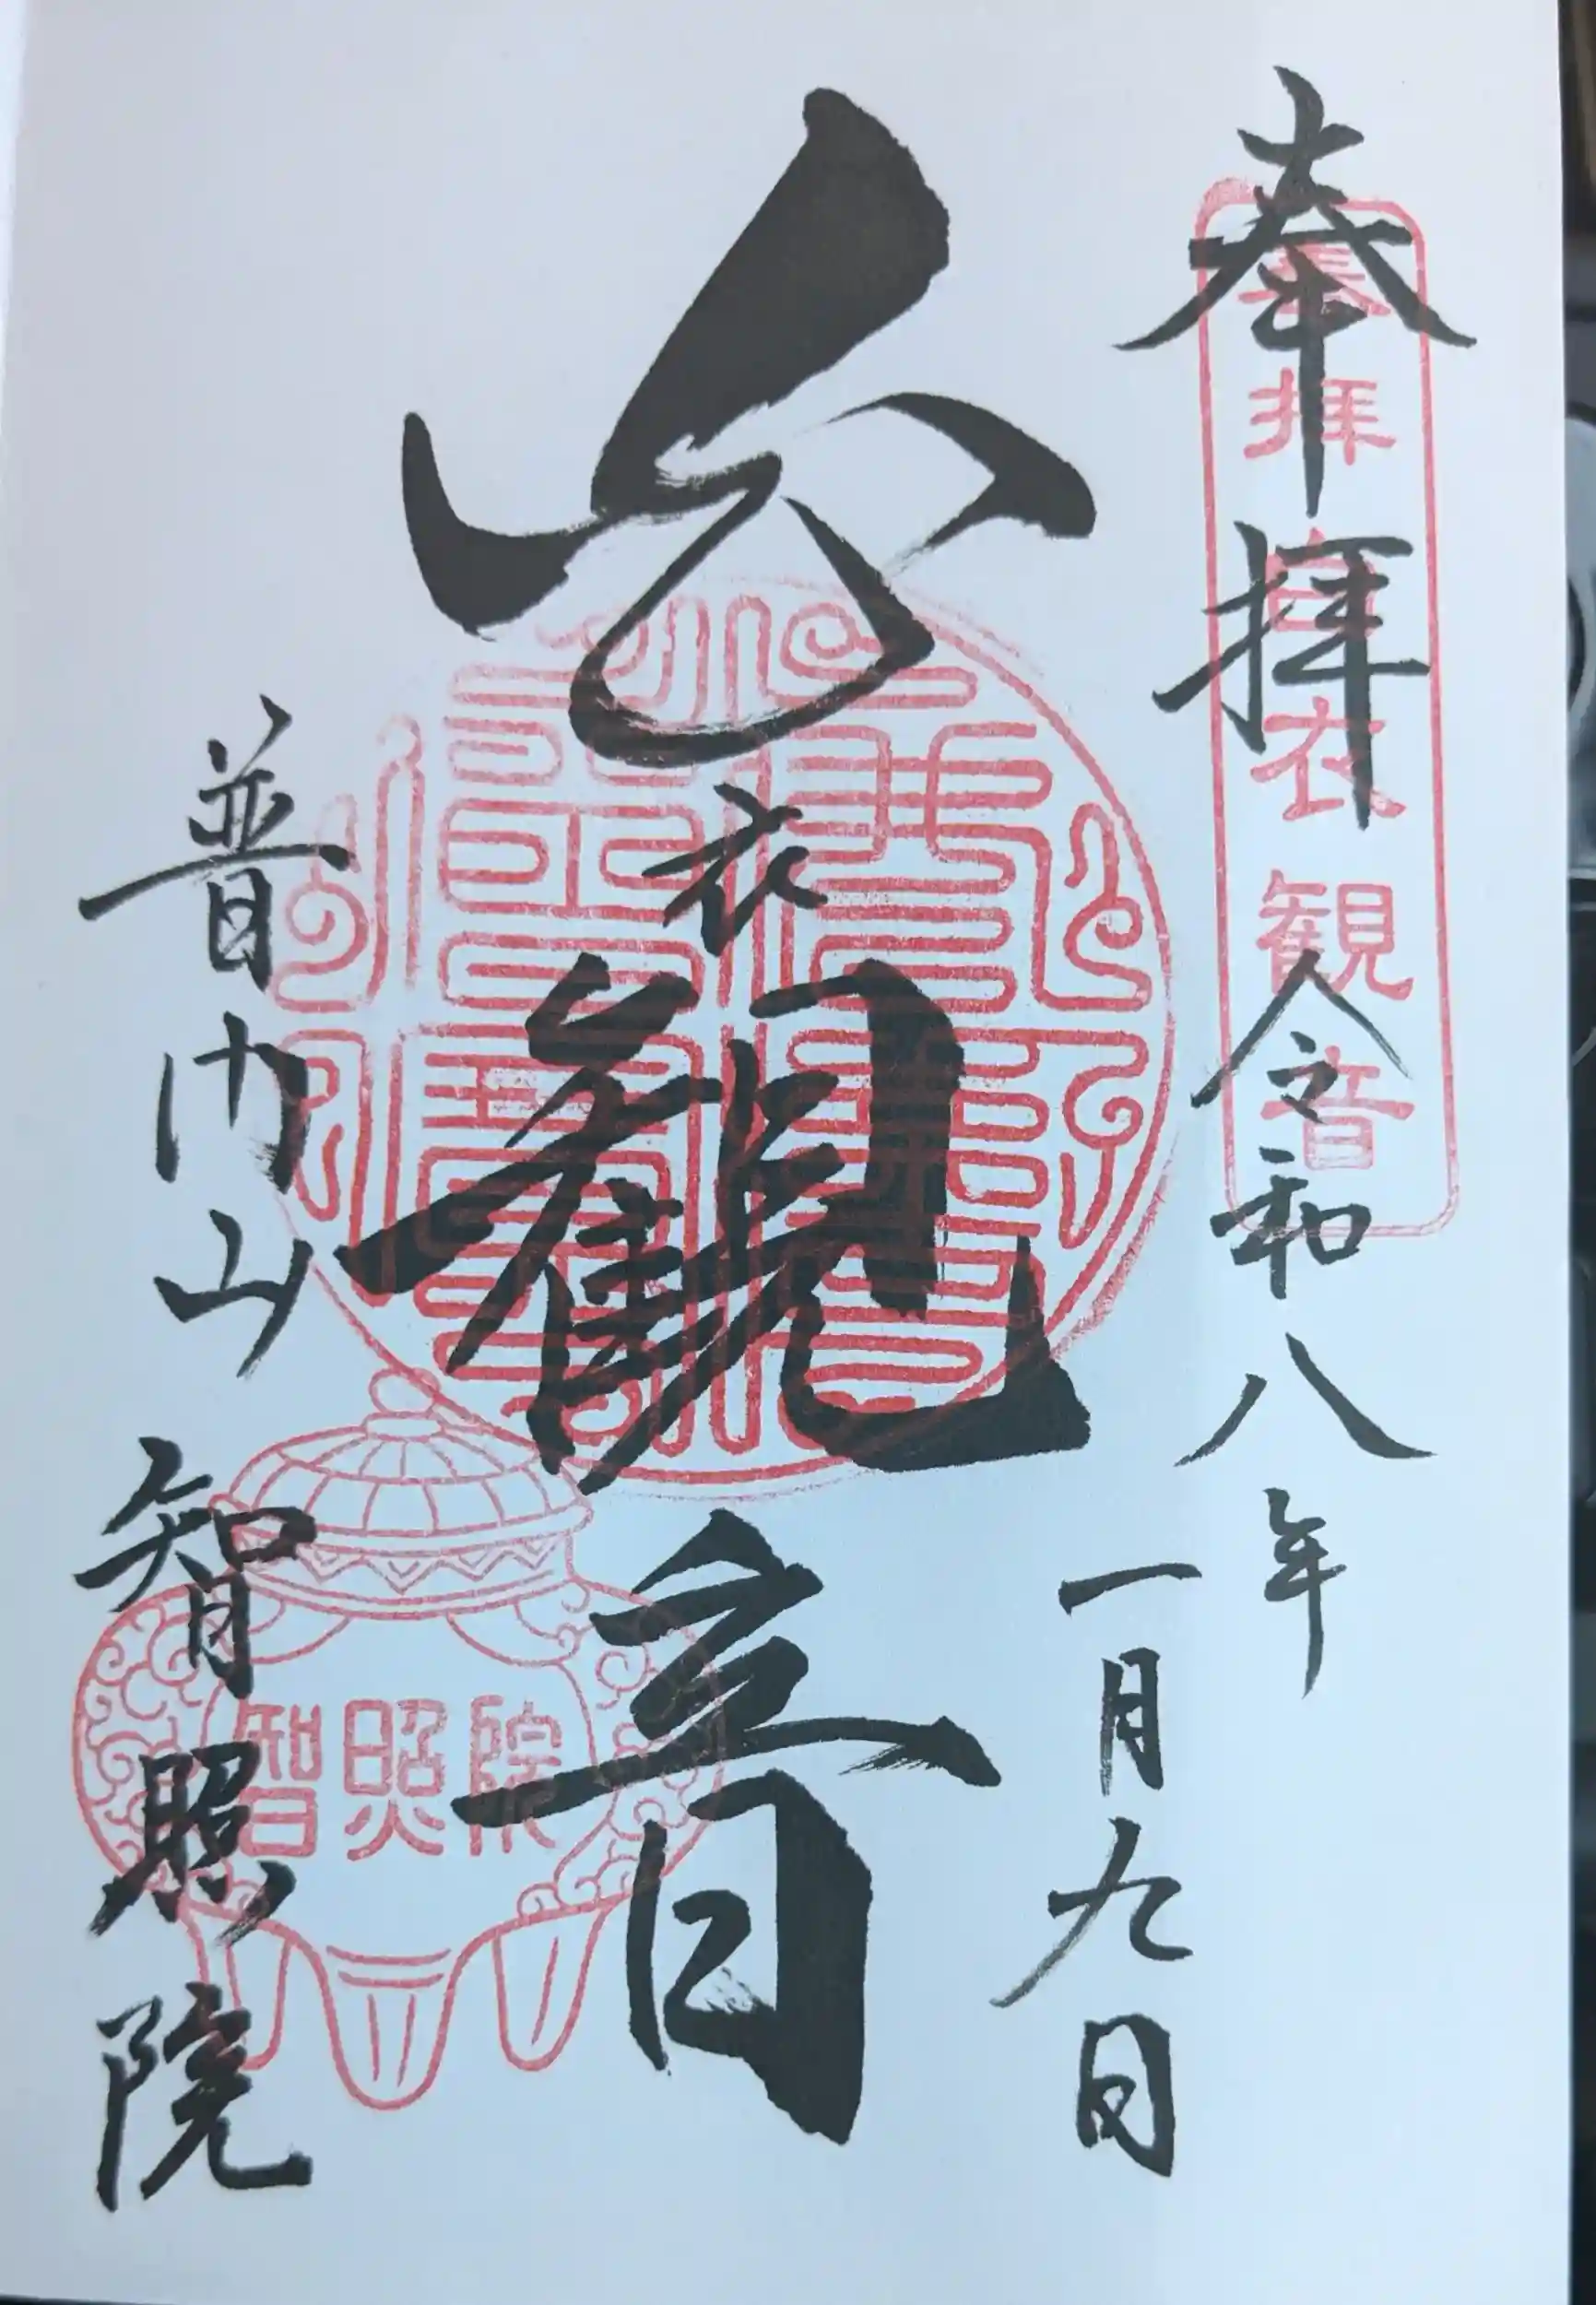 奉拝
令和八年
一月九日
奉拝 白衣観音
白衣観音
普門山 智照院
智照院